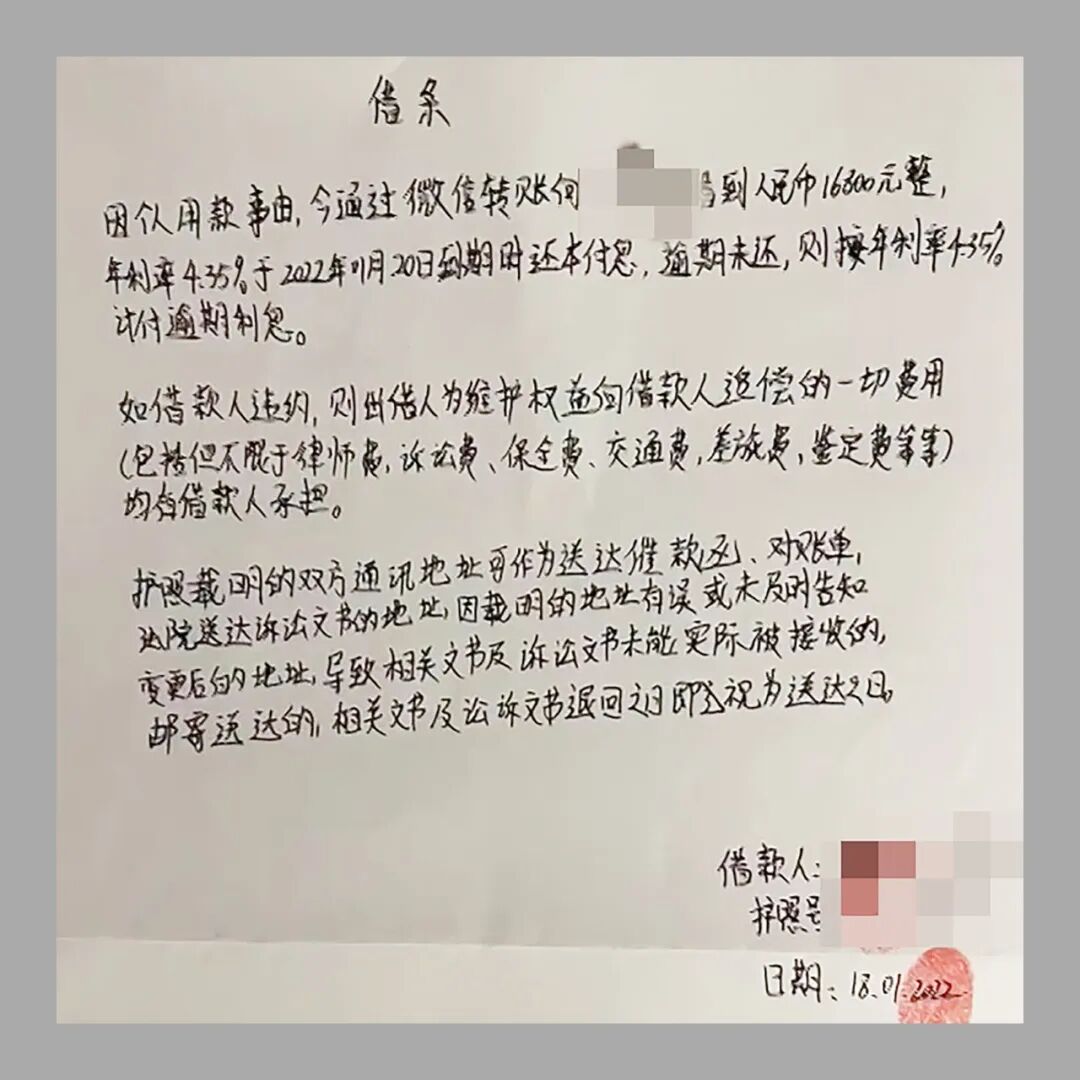 借条
因个人用款事由,今通过微信转账向 借到人民币16800元整,
年利率4.35%于2022年11月20日到期时还本付息,逾期未还,则按年利率4.35%
计付逾期利息。
如借款人违约,则出借人为维护权益向借款人追偿的一切费用
(包括但不限于律师费,诉讼费、保全费、交通费,差旅费,鉴定费等等)
均有借款人承担。
护照载明的双方通讯地址可作为送达催款函、对账单,
法院送达诉讼文书的地址,因载明的地址有误或未及时告知
变更后的地址,导致相关文书及诉讼文书未能实际被接收的,
邮寄送达的,相关文书及讼诉文书退回之日即视为送达之日。
借款人:
护照号
日期:18.01.2022